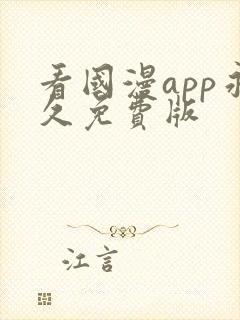 看國漫app永
久免費版
江言